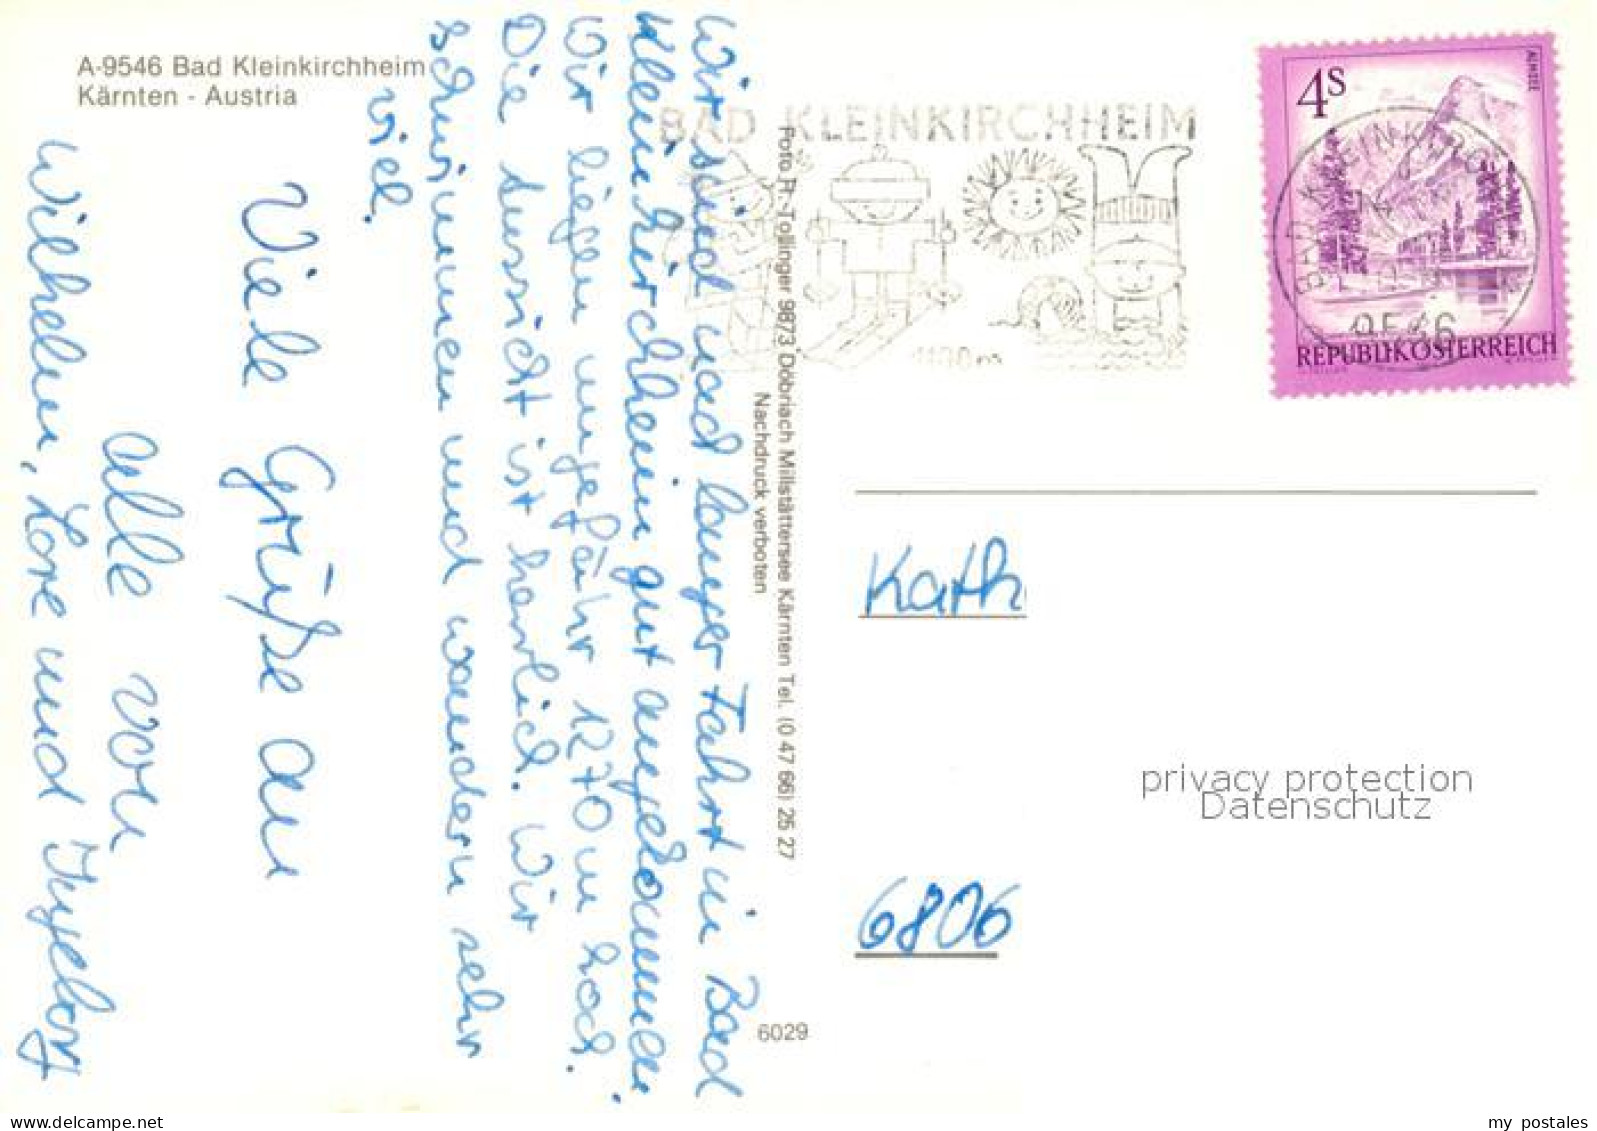 A-9546 Bad Kleinkirchheim
Kärnten - Austria
Wir sind nach langer Fahrt in Bad
Kleinkirchheim gut angekommen
Wir liegen ungefähr 1270 m hoch.
Die Aussicht ist herrlich. Wir
schwimmen und wandern sehr
viel.
Viele Grüße an
alle von
Wilhelm, Lore und Ingeborg
Foto R. Tollinger 9873 Döbriach Millstättersee Kärnten Tel. (0 47 66) 25 27
Nachdruck verboten
6029
BAD KLEINKIRCHHEIM
4S
ALMSEE
REPUBLIK ÖSTERREICH
BAD KLEINKIRCH
9546
Kath
6806
privacy protection
Datenschutz
www.delcampe.net
my_postales